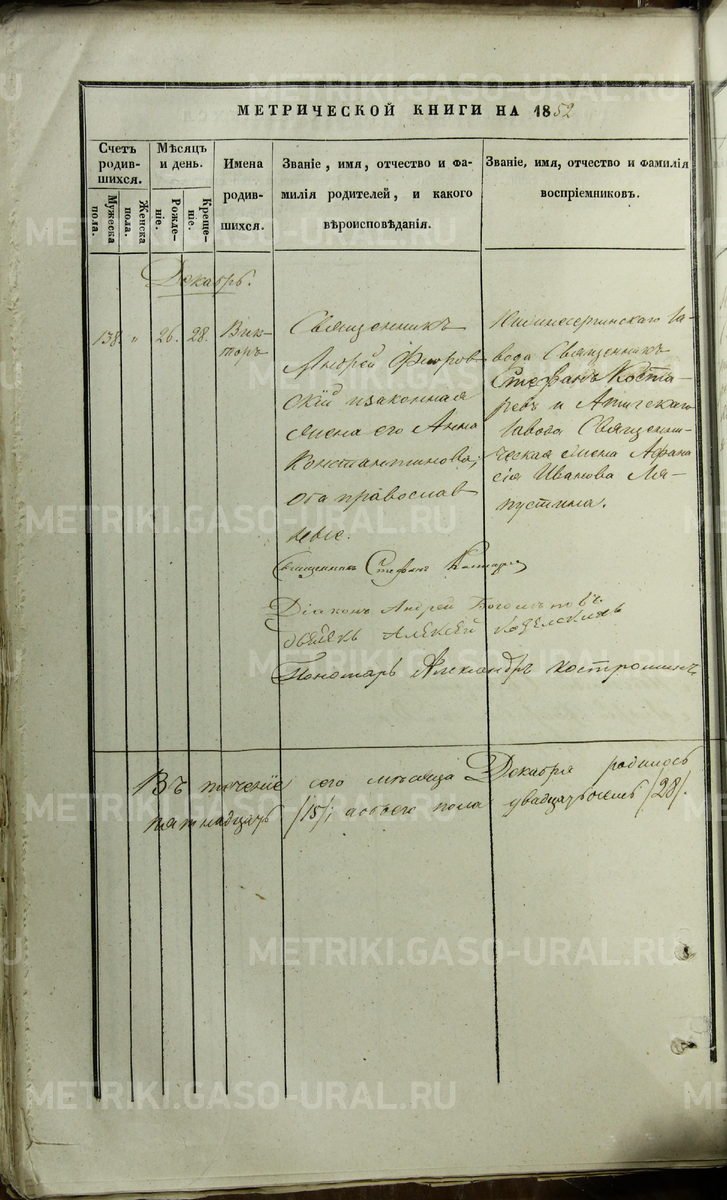 МЕТРИЧЕСКОЙ КНИГИ НА 1852
Счетъ родив-шихся.
Мужеска пола.
Женска пола.
Мѣсяцъ и день.
Рожде-ніе.
Креще-ніе.
Имена родив-шихся.
Званіе, имя, отчество и фа-
милія родителей, и какого
вѣроисповѣданія.
Званіе, имя, отчество и фамилія
воспріемниковъ.
Декабрь.
138. " 26. 28. Вик-
торъ
Священникъ
Андрей Флоров
скій и законная
жена его Анна
Константинова;
оба православ
ные.
Нижнесергинскаго За-
вода Священникъ
Стефанъ Костa-
ревъ и Атигскаго
Завода Священни-
ческая жена Афана
сія Иванова Ля-
пустина.
Священникъ Стефанъ Костаревъ
Діаконъ Андрей
Дьячекъ Алексей
Пономарь Александръ Костроминъ
Въ теченіе сего мѣсяца Декабря родилось
пятнадцать /15/; а обоего пола двадцать восемь /28/.
METRIKI.GASO-URAL.RU